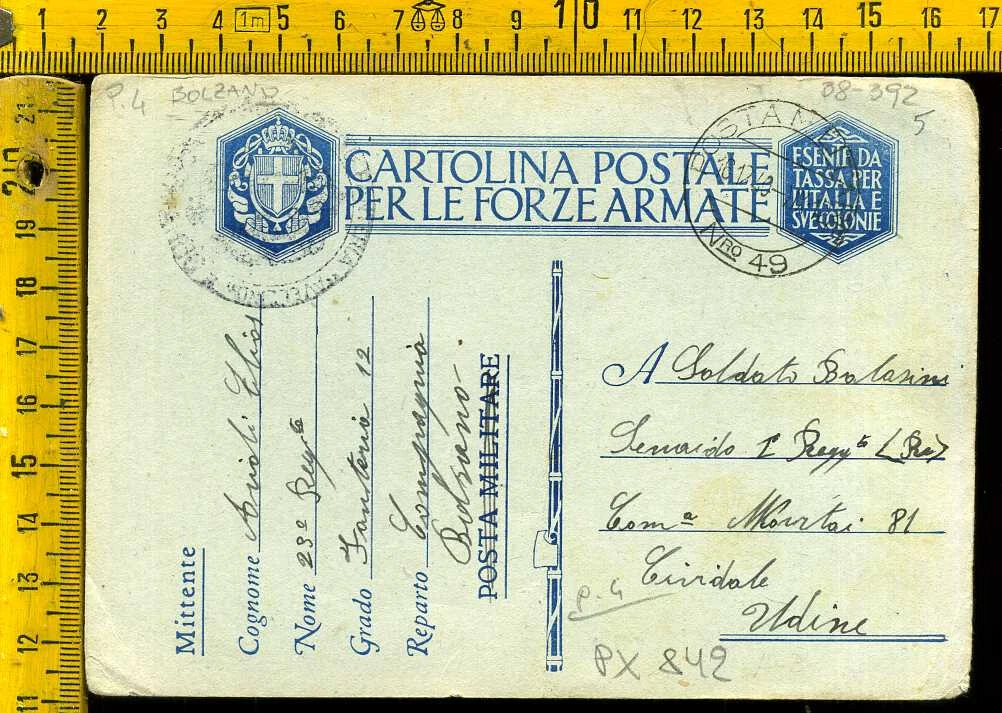 P.4 BOLZANO
38-392
5
CARTOLINA POSTALE
PER LE FORZE ARMATE
ESENTE DA
TASSA PER
L'ITALIA E
SVE COLONIE
POSTA MILITARE
Nro 49
Mittente
Cognome Arioli Elios
Nome 23° Regto
Grado Fanteria 12
Reparto Compagnia
Bolzano
POSTA MILITARE
A Soldato Balasini
Senaido 1° Regg to (Re)
Com a Mortai 81
Cividale
Udine
P.4
PX 842